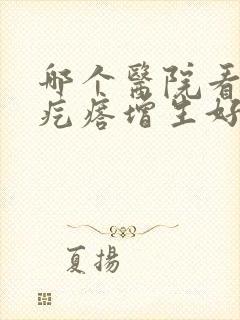 哪个醫院看
疙瘩增生好
夏揚